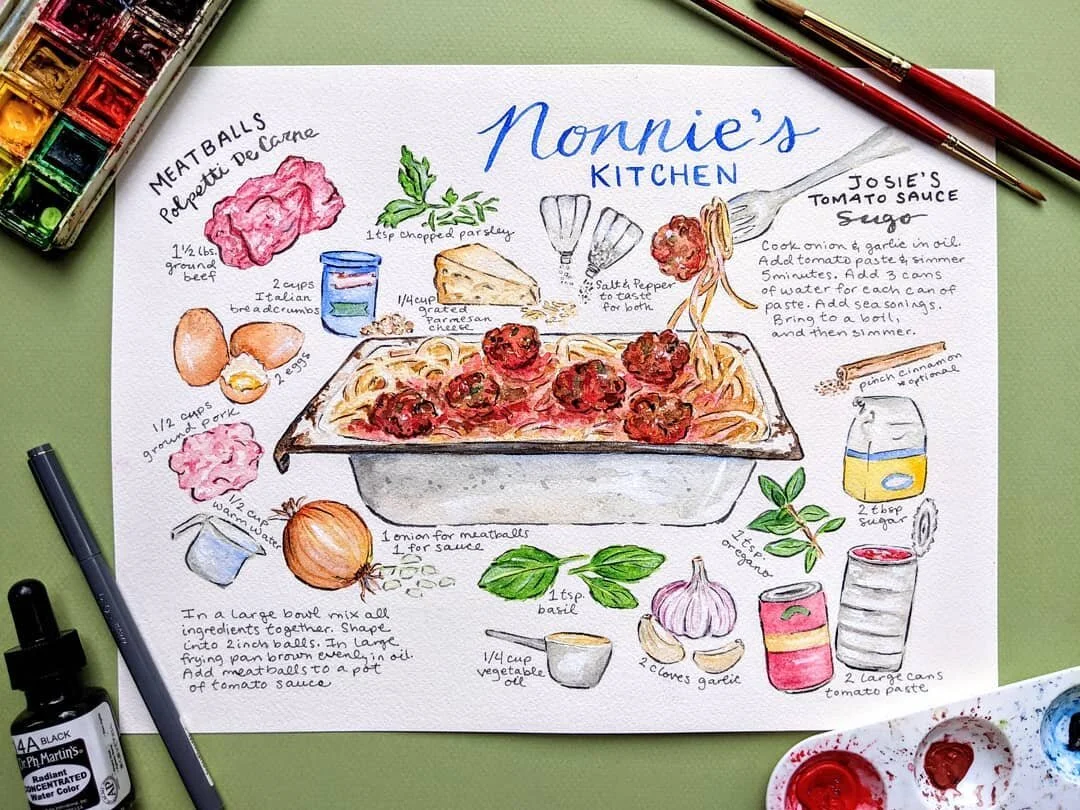 Nonnie's
KITCHEN
MEATBALLS
Polpetti De Carne
1 1/2 lbs.
ground
beef
1 tsp chopped parsley
2 cups
Italian
breadcrumbs
1/4 cup
grated
Parmesan
cheese
Salt & Pepper
to taste
for both
2 eggs
1/2 cups
ground pork
1/2 cup
warm water
1 onion for meatballs
1 for sauce
In a large bowl mix all
ingredients together. Shape
into 2 inch balls. In large
frying pan brown evenly in oil.
Add meatballs to a pot
of tomato sauce
JOSIE'S
TOMATO SAUCE
Sugo
Cook onion & garlic in oil.
Add tomato paste & simmer
5 minutes. Add 3 cans
of water for each can of
paste. Add seasonings.
Bring to a boil,
and then simmer.
pinch cinnamon
*optional
2 tbsp
sugar
1 tsp.
oregano
1 tsp.
basil
1/4 cup
vegetable
oil
2 cloves garlic
2 large cans
tomato paste
4A BLACK
Dr. Ph. Martin's
Radiant
CONCENTRATED
Water Color